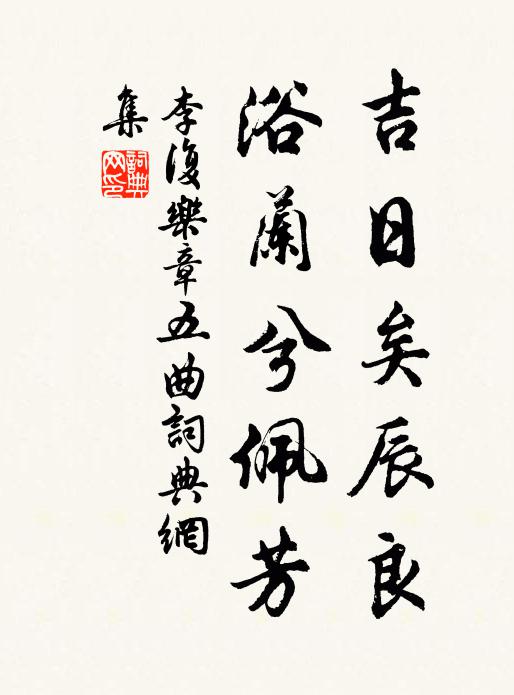 吉日矣辰良
浴蘭兮佩芳
李復樂章五曲詞典網
集
詞典網印